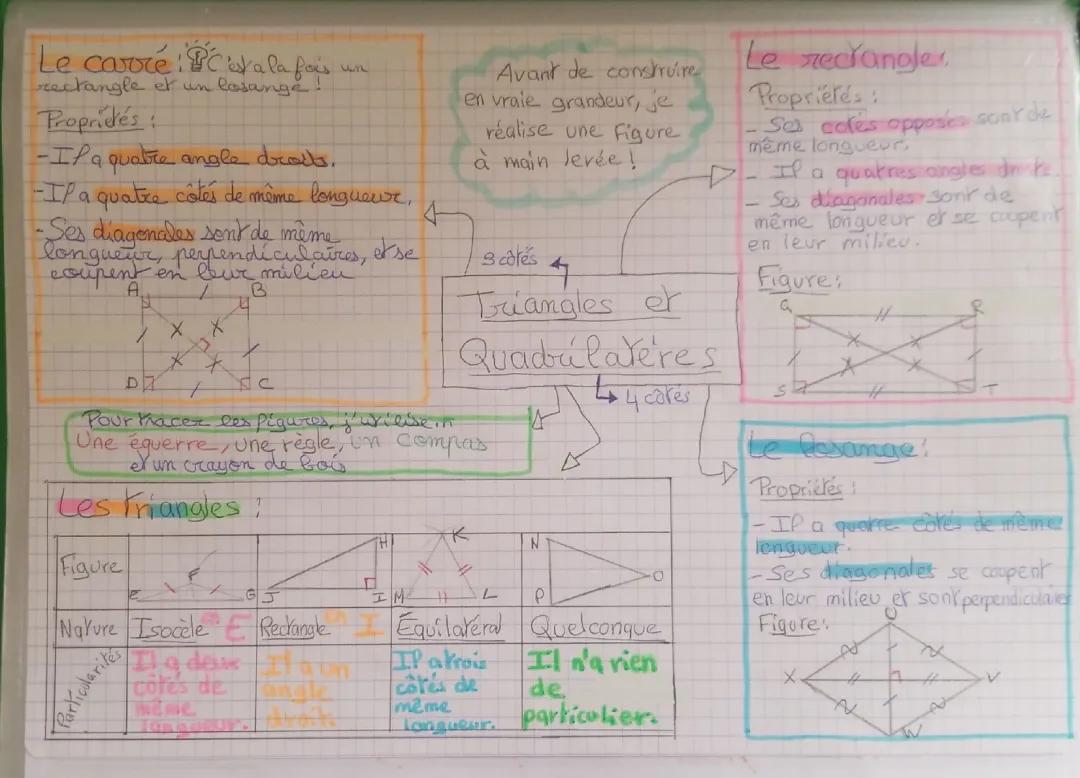 Le carré : C'est à la fois un
rectangle et un losange !
Propriétés :
- Il a quatre angle droits.
- Il a quatre côtés de même longueur.
- Ses diagonales sont de même
longueur, perpendiculaires, et se
coupent en leur milieu
A B
D C
Avant de construire
en vraie grandeur, je
réalise une figure
à main levée !
Le rectangle :
Propriétés :
- Ses cotés opposés sont de
même longueur.
- Il a quatres angles droits.
- Ses diagonales sont de
même longueur et se coupent
en leur milieu.
Figure :
Q R
S T
3 côtés
Triangles et
Quadrilatères
4 côtés
Pour tracer les figures, j'utilise :
Une équerre, une règle, un compas
et un crayon de bois
Le losange :
Propriétés :
- Il a quatre côtés de même
longueur.
- Ses diagonales se coupent
en leur milieu et sont perpendiculaires
Figure :
U
X V
W
Les triangles :
Figure
E F G
J H I
M K L
N O P
Nature Isocèle en E Rectangle en I Équilatéral Quelconque
Particularités
Il a deux
côtés de
même
longueur.
Il a un
angle
droit.
Il a trois
côtés de
même
longueur.
Il n'a rien
de
particulier.